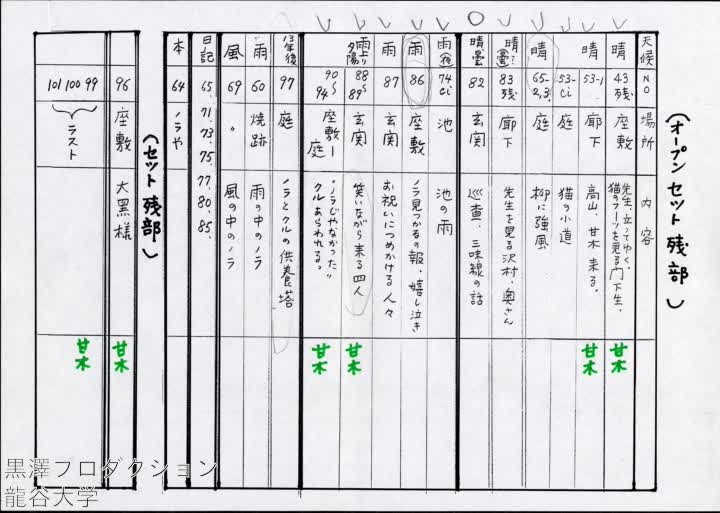 （オープンセット残部）
天候 NO 場所 内容
晴 43残 座敷 先生、立ってゆく、猫のフーツを見る門下生、 甘木
晴 53-1 廊下 高山、甘木来る、 甘木
53-ci 庭 猫の小道
晴 65-2,3, 庭 柳に強風
晴(曇?) 83残 廊下 先生を見る沢村、奥さん
晴曇 82 玄関 巡査、三味線の話
雨(夜) 74ci 池 池の雨
雨 86 座敷 ノラ見つかるの報、嬉し泣き
雨 87 玄関 お祝いにつめかける人々
雨上り夕陽 88〜89 玄関 笑いながら来る四人 甘木
90〜94 座敷ー庭 "ノラじゃなかった"クルあらわれる。 甘木
13年後 97 庭 ノラとクルの供養塔
雨 60 焼跡 雨の中のノラ
風 69 〃 風の中のノラ
日記 65、71、73、75、77、80、85
本 64 ノラや
（セット残部）
96 座敷 大黒様 甘木
99 100 101 ラスト 甘木
黒澤プロダクション
龍谷大学